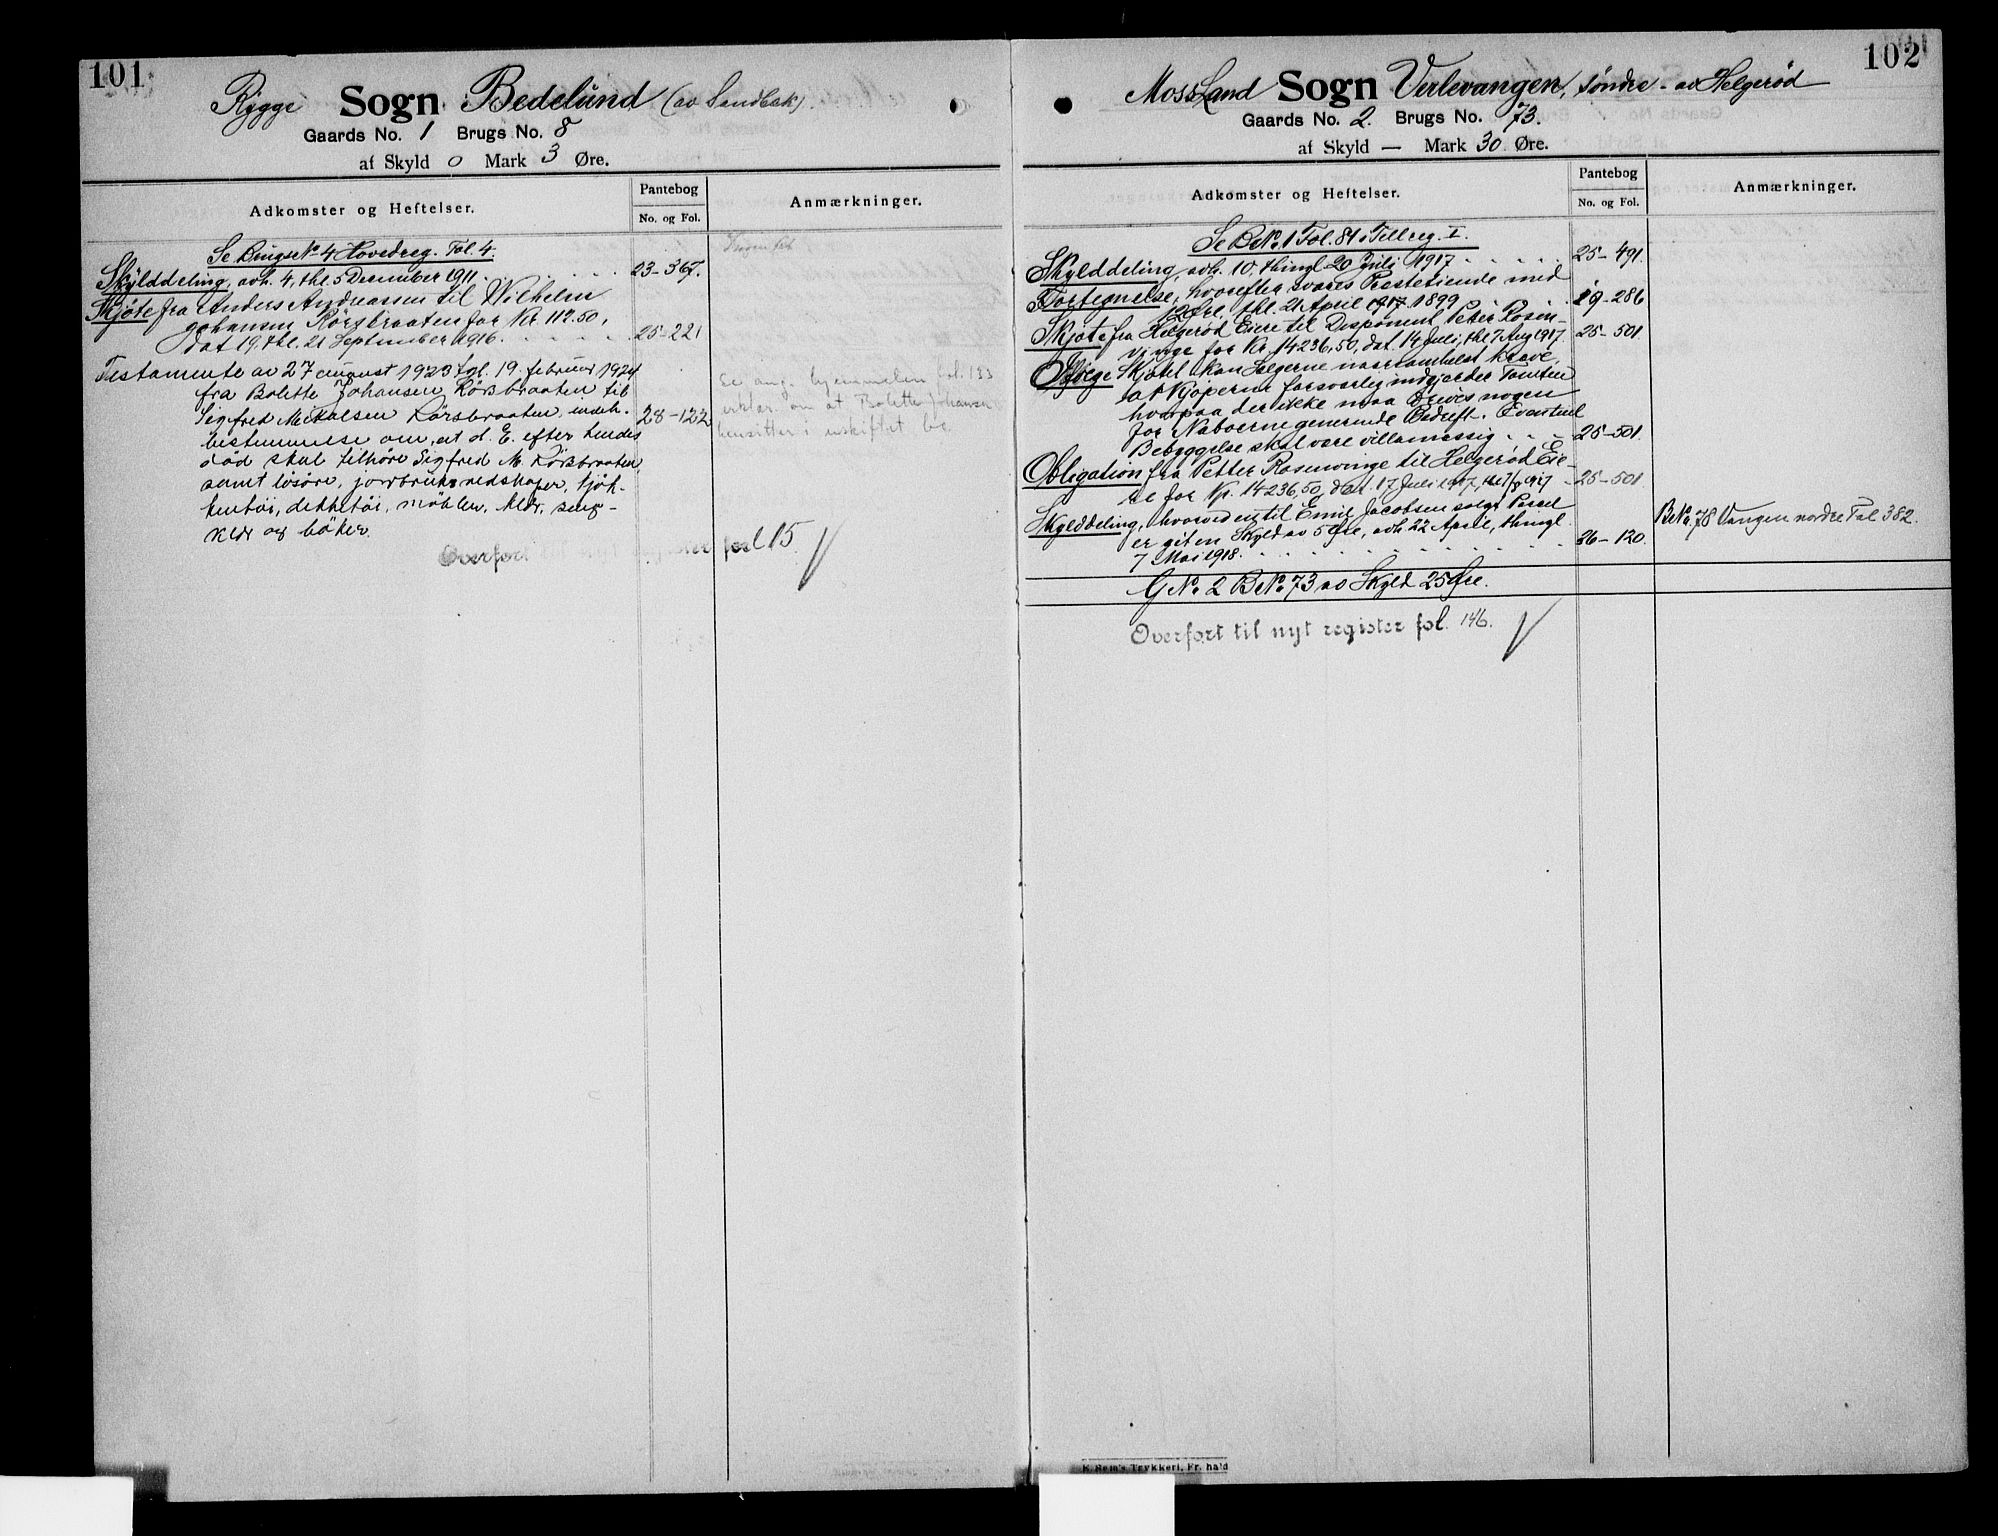 101
Rygge Sogn Bedelund (av Sandbæk).
Gaards No. 1 Brugs No. 8
af Skyld 0 Mark 3 Øre.
Adkomster og Heftelser.
Pantebog
No. og Fol.
Anmærkninger.
Se Brugs No 4 Hovedreg. Fol. 4.
Skylddeling, avh. 4, thl. 5 December 1911 23-367.
Skjøte fra Anders Andreassen til Wilhelm
Johansen Rörsbraaten for Kr. 112.50,
dat 19, thl. 21 September 1916. 25-221
Testamente av 27 august 1923 tgl. 19. februar 1924
fra Bolette Johansen Rörsbraaten til
Sigfred Mikalsen Rörsbraaten, indeh. 28-122
bestemmelse om, at d. E. efter hendes
död skal tilhöre Sigfred M. Rörsbraaten
samt lösöre, jordbruksredskaper, kjök-
kentöi, dekketöi, möbler, klær, seng-
klær og böker.
Se ang. hjemmelen fol. 183
erklær. om at Bolette Johansen
hensitter i uskiftet bo.
Overført til nyt register fol 15.
102
Moss Land Sogn Verlevangen, søndre - av Helgerød
Gaards No. 2. Brugs No. 73.
af Skyld — Mark 30 Øre.
Adkomster og Heftelser.
Pantebog
No. og Fol.
Anmærkninger.
Se B.No. 1 Fol. 81 i Tillreg. I.
Skylddeling, avh. 10. thingl. 20 Juli 1917 25-491.
Fortegnelse, hvorefter svares Prestetiende med
12 Øre, thl. 21 April 1917. 1899 19-286
Skjøte fra Helgerød Eiere til Disponent Peter Rosen-
vinge for Kr. 14236,50, dat. 14 Juli, thl 7 Aug 1917. 25-501.
Ifølge Skjøtet kan Sælgerne nærsomhelst kræve,
at Kjøperne forsvarlig indgjærder Tomten
hvorpaa der ikke maa drives nogen
for Naboerne generende Bedrift. Eventuel
Bebyggelse skal være villamæssig 25-501.
Obligation fra Petter Rosenvinge til Helgerød Eie-
re for Kr. 14236,50, dat. 17 Juli 1917, thl 7/8 1917 25-501
Skylddeling, hvorved en til Emil Jacobsen solgt Parcel
er git en Skyld av 5 Øre, avh. 22 April, thingl.
7 Mai 1918. 26-120.
B.No. 78 Vangen nordre Fol 382.
G.No. 2 B.No. 73 av Skyld 25 Øre.
Overført til nyt register fol. 146.
E. Sem's Trykkeri, Fr. hald